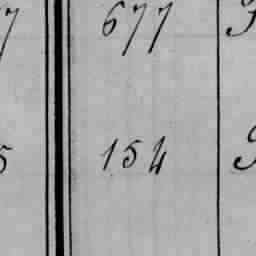 7 677
5 154